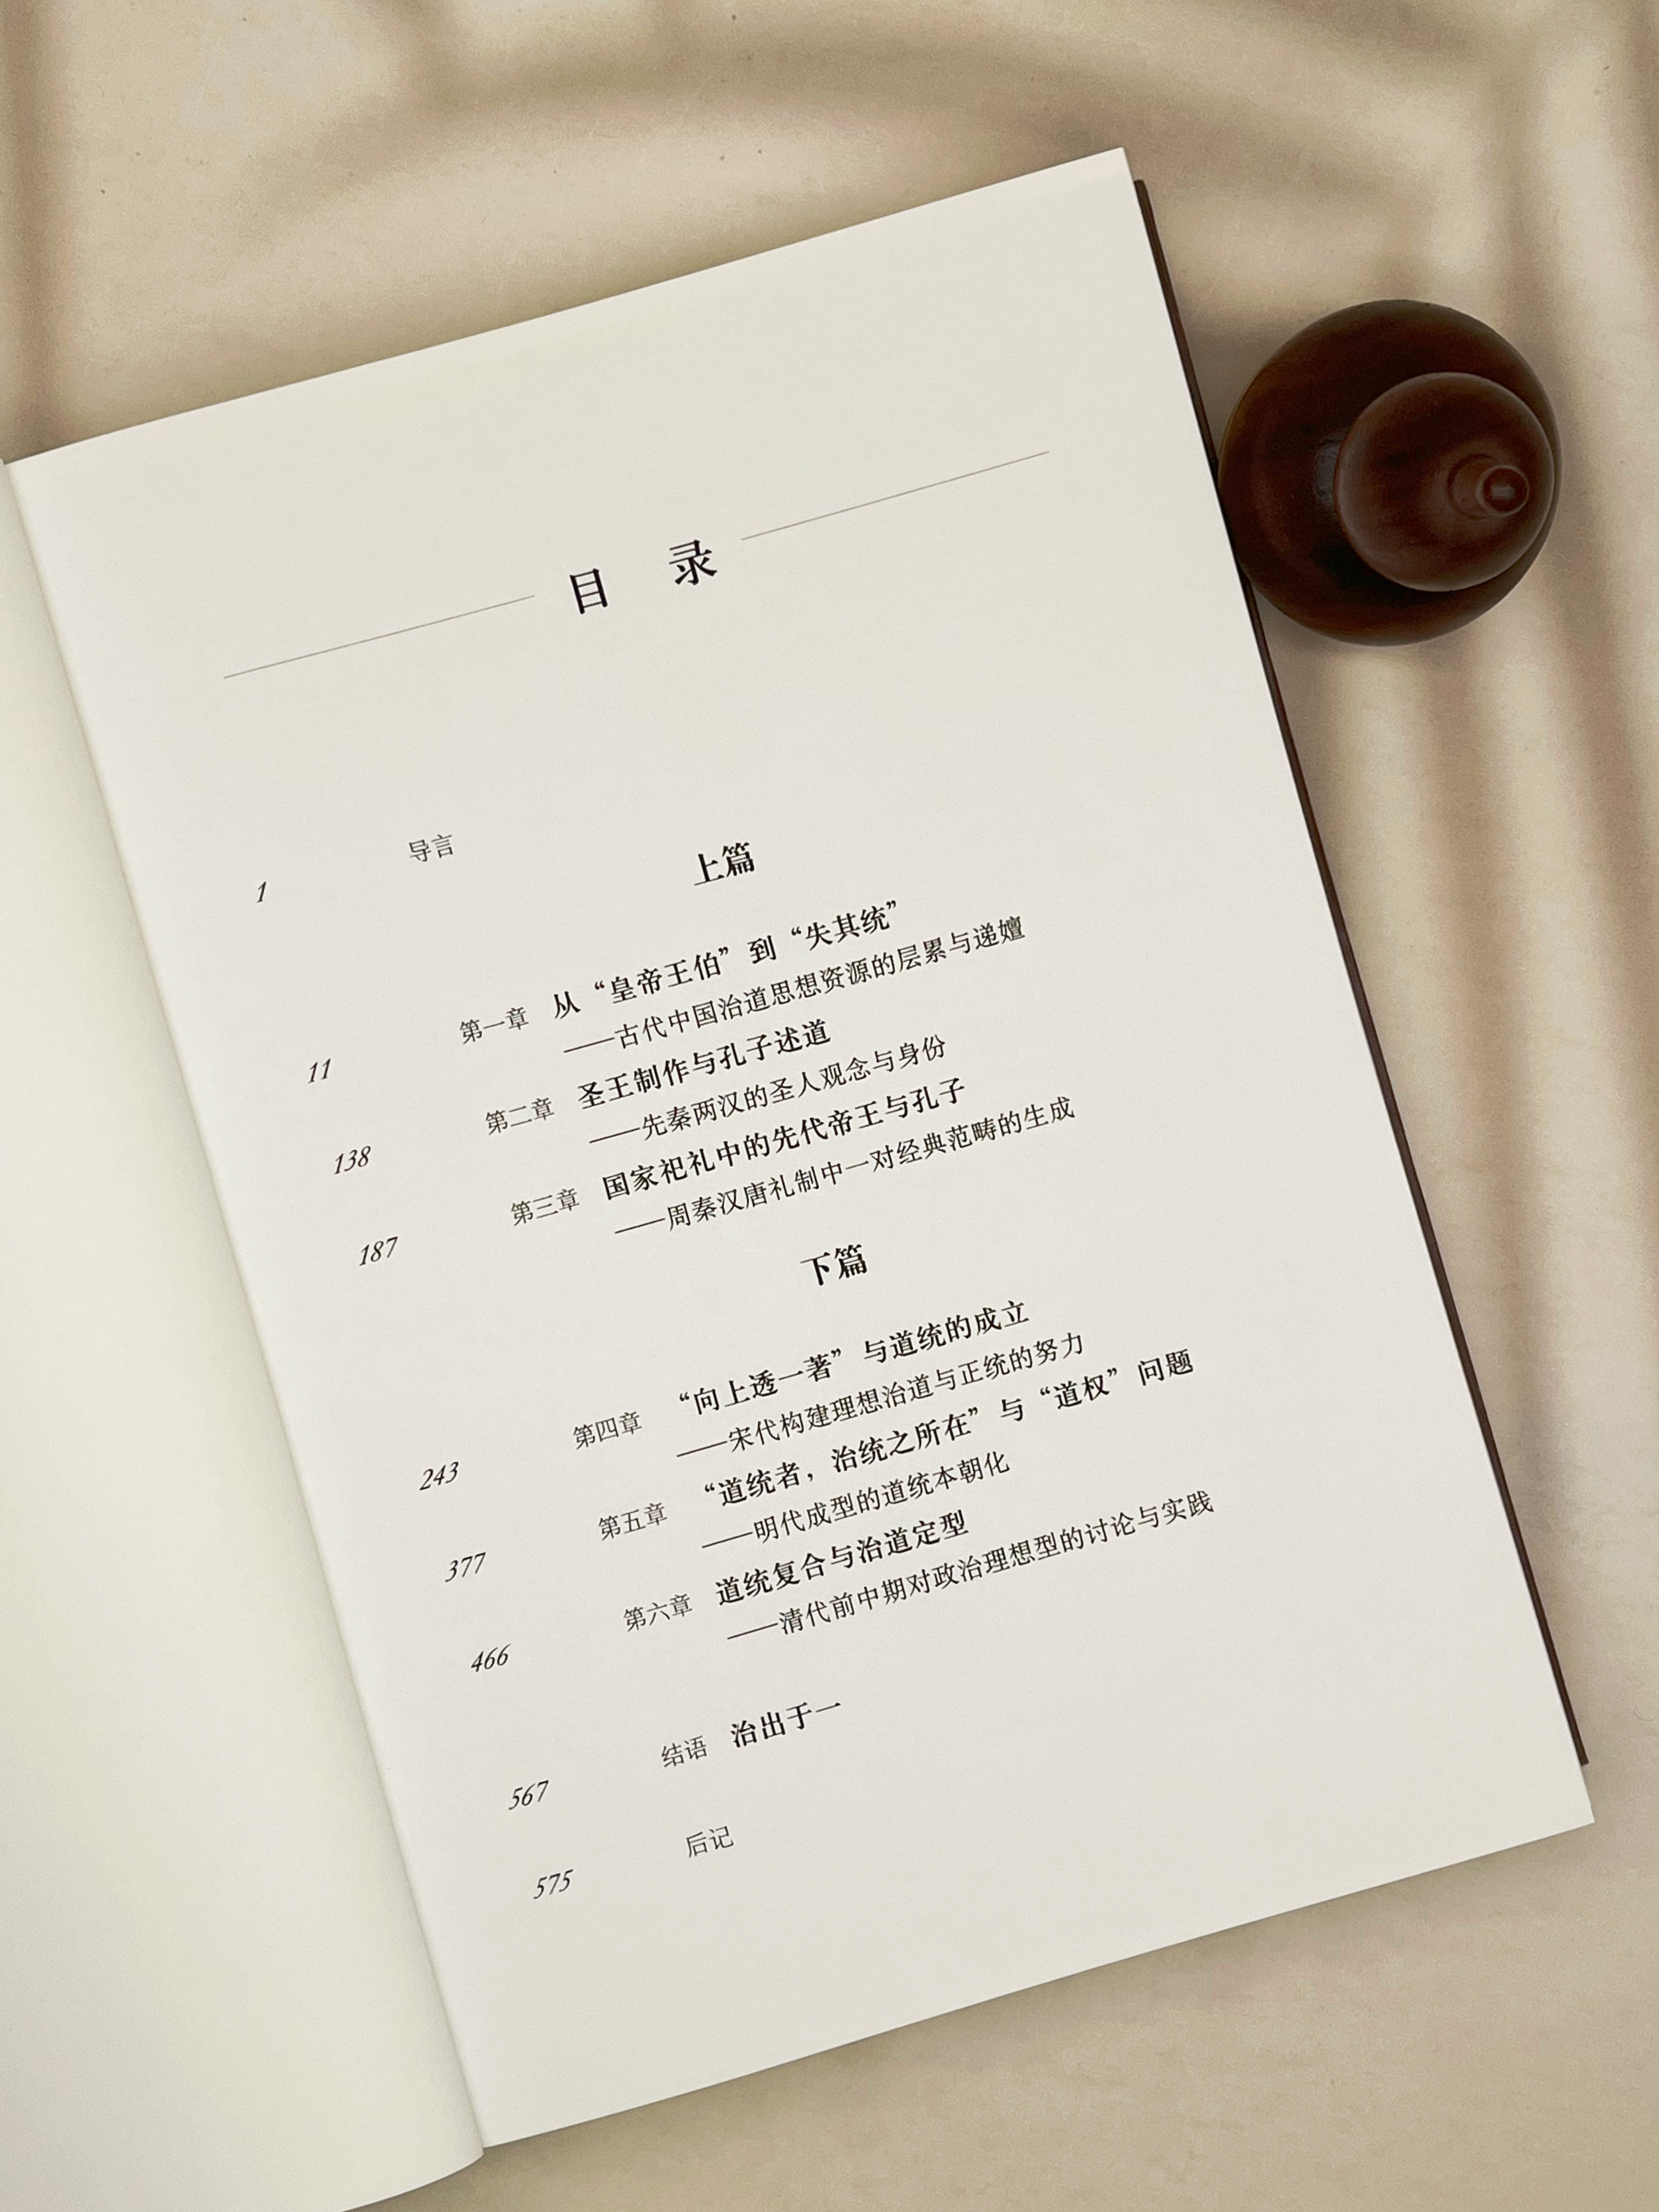 目 录
1 导言
上篇
11 第一章 从“皇帝王伯”到“失其统”
——古代中国治道思想资源的层累与递嬗
138 第二章 圣王制作与孔子述道
——先秦两汉的圣人观念与身份
187 第三章 国家祀礼中的先代帝王与孔子
——周秦汉唐礼制中一对经典范畴的生成
下篇
243 第四章 “向上透一著”与道统的成立
——宋代构建理想治道与正统的努力
377 第五章 “道统者，治统之所在”与“道权”问题
——明代成型的道统本朝化
466 第六章 道统复合与治道定型
——清代前中期对政治理想型的讨论与实践
567 结语 治出于一
575 后记